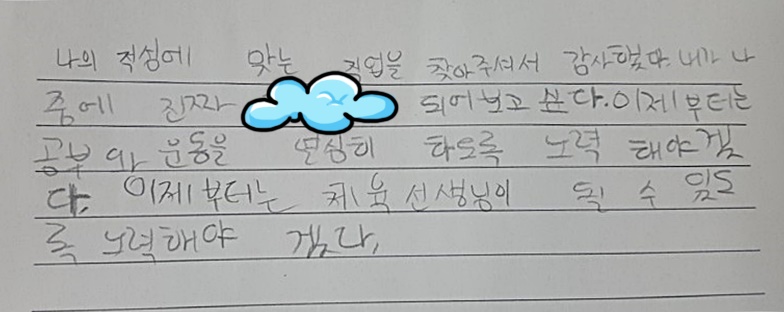 나의 적성에 맞는 직업을 찾아주셔서 감사했다. 내가 나
중에 진짜 되어보고 싶다. 이제부터는
공부와 운동을 열심히 하도록 노력 해야겠
다. 이제부터는 체육선생님이 될 수 있도
록 노력해야 겠다.